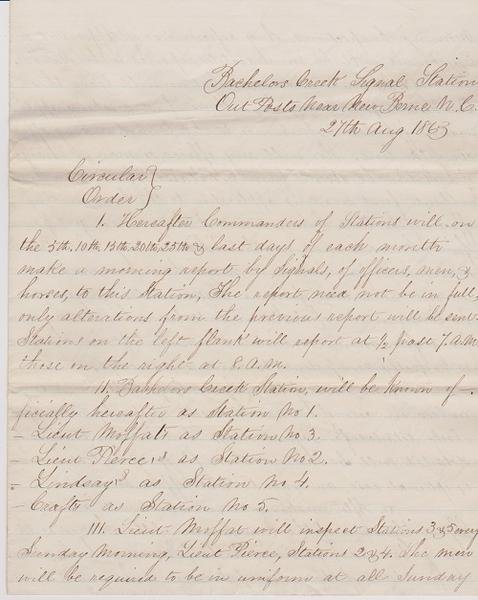 Bachelors Creek Signal Station
Out Posts Near New Berne N.C.
27th Aug 1863
Circular }
Order }
I. Hereafter Commanders of Stations will on
the 5th. 10th. 15th. 20th. 25th & last days of each month
make a morning report by Signals, of officers, men, &
horses, to this Station, The report need not be in full,
only alterations from the previous report will be sent.
Stations on the left flank will report at ½ past 7. A.M.
those on the right at 8. A.M.
II. Bachelors Creek Station, will be known of-
ficially hereafter as Station No 1.
- Lieut Moffats as Station No 3.
- Lieut Pierce's as Station No 2.
- Lindsay's as Station No 4.
- Crafts as Station No 5.
III. Lieut Moffat will inspect Stations 3 & 5 every
Sunday Morning, Lieut Pierce, Stations 2 & 4. The men
will be required to be in uniform at all Sunday